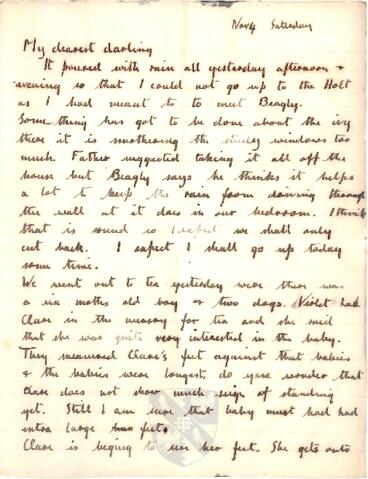 Nov 4 Saturday
My dearest darling
It poured with rain all yesterday afternoon &
evening so that I could not go up to the Holt
as I had meant to to meet Beagly.
Some thing has got to be done about the ivy
there it is smothering the study windows too
much. Father suggested taking it all off the
house but Beagly says he thinks it helps
a lot to keep the rain from driving through
the wall at it does in our bedroom. I think
that is sound so I expect we shall only
cut back. I expect I shall go up today
some time.
We went out to tea yesterday were there was
a six moths old boy & two dogs. Violet had
Clare in the nursery for tea and she said
that she was quite very interested in the baby.
They measured Clare's feet against that babies
& the babies were longest, do you wonder that
Clare does not show much sign of standing
yet. Still I am sure that baby must had had
extra large feet.
Clare is beging to use her feet. She gets onto